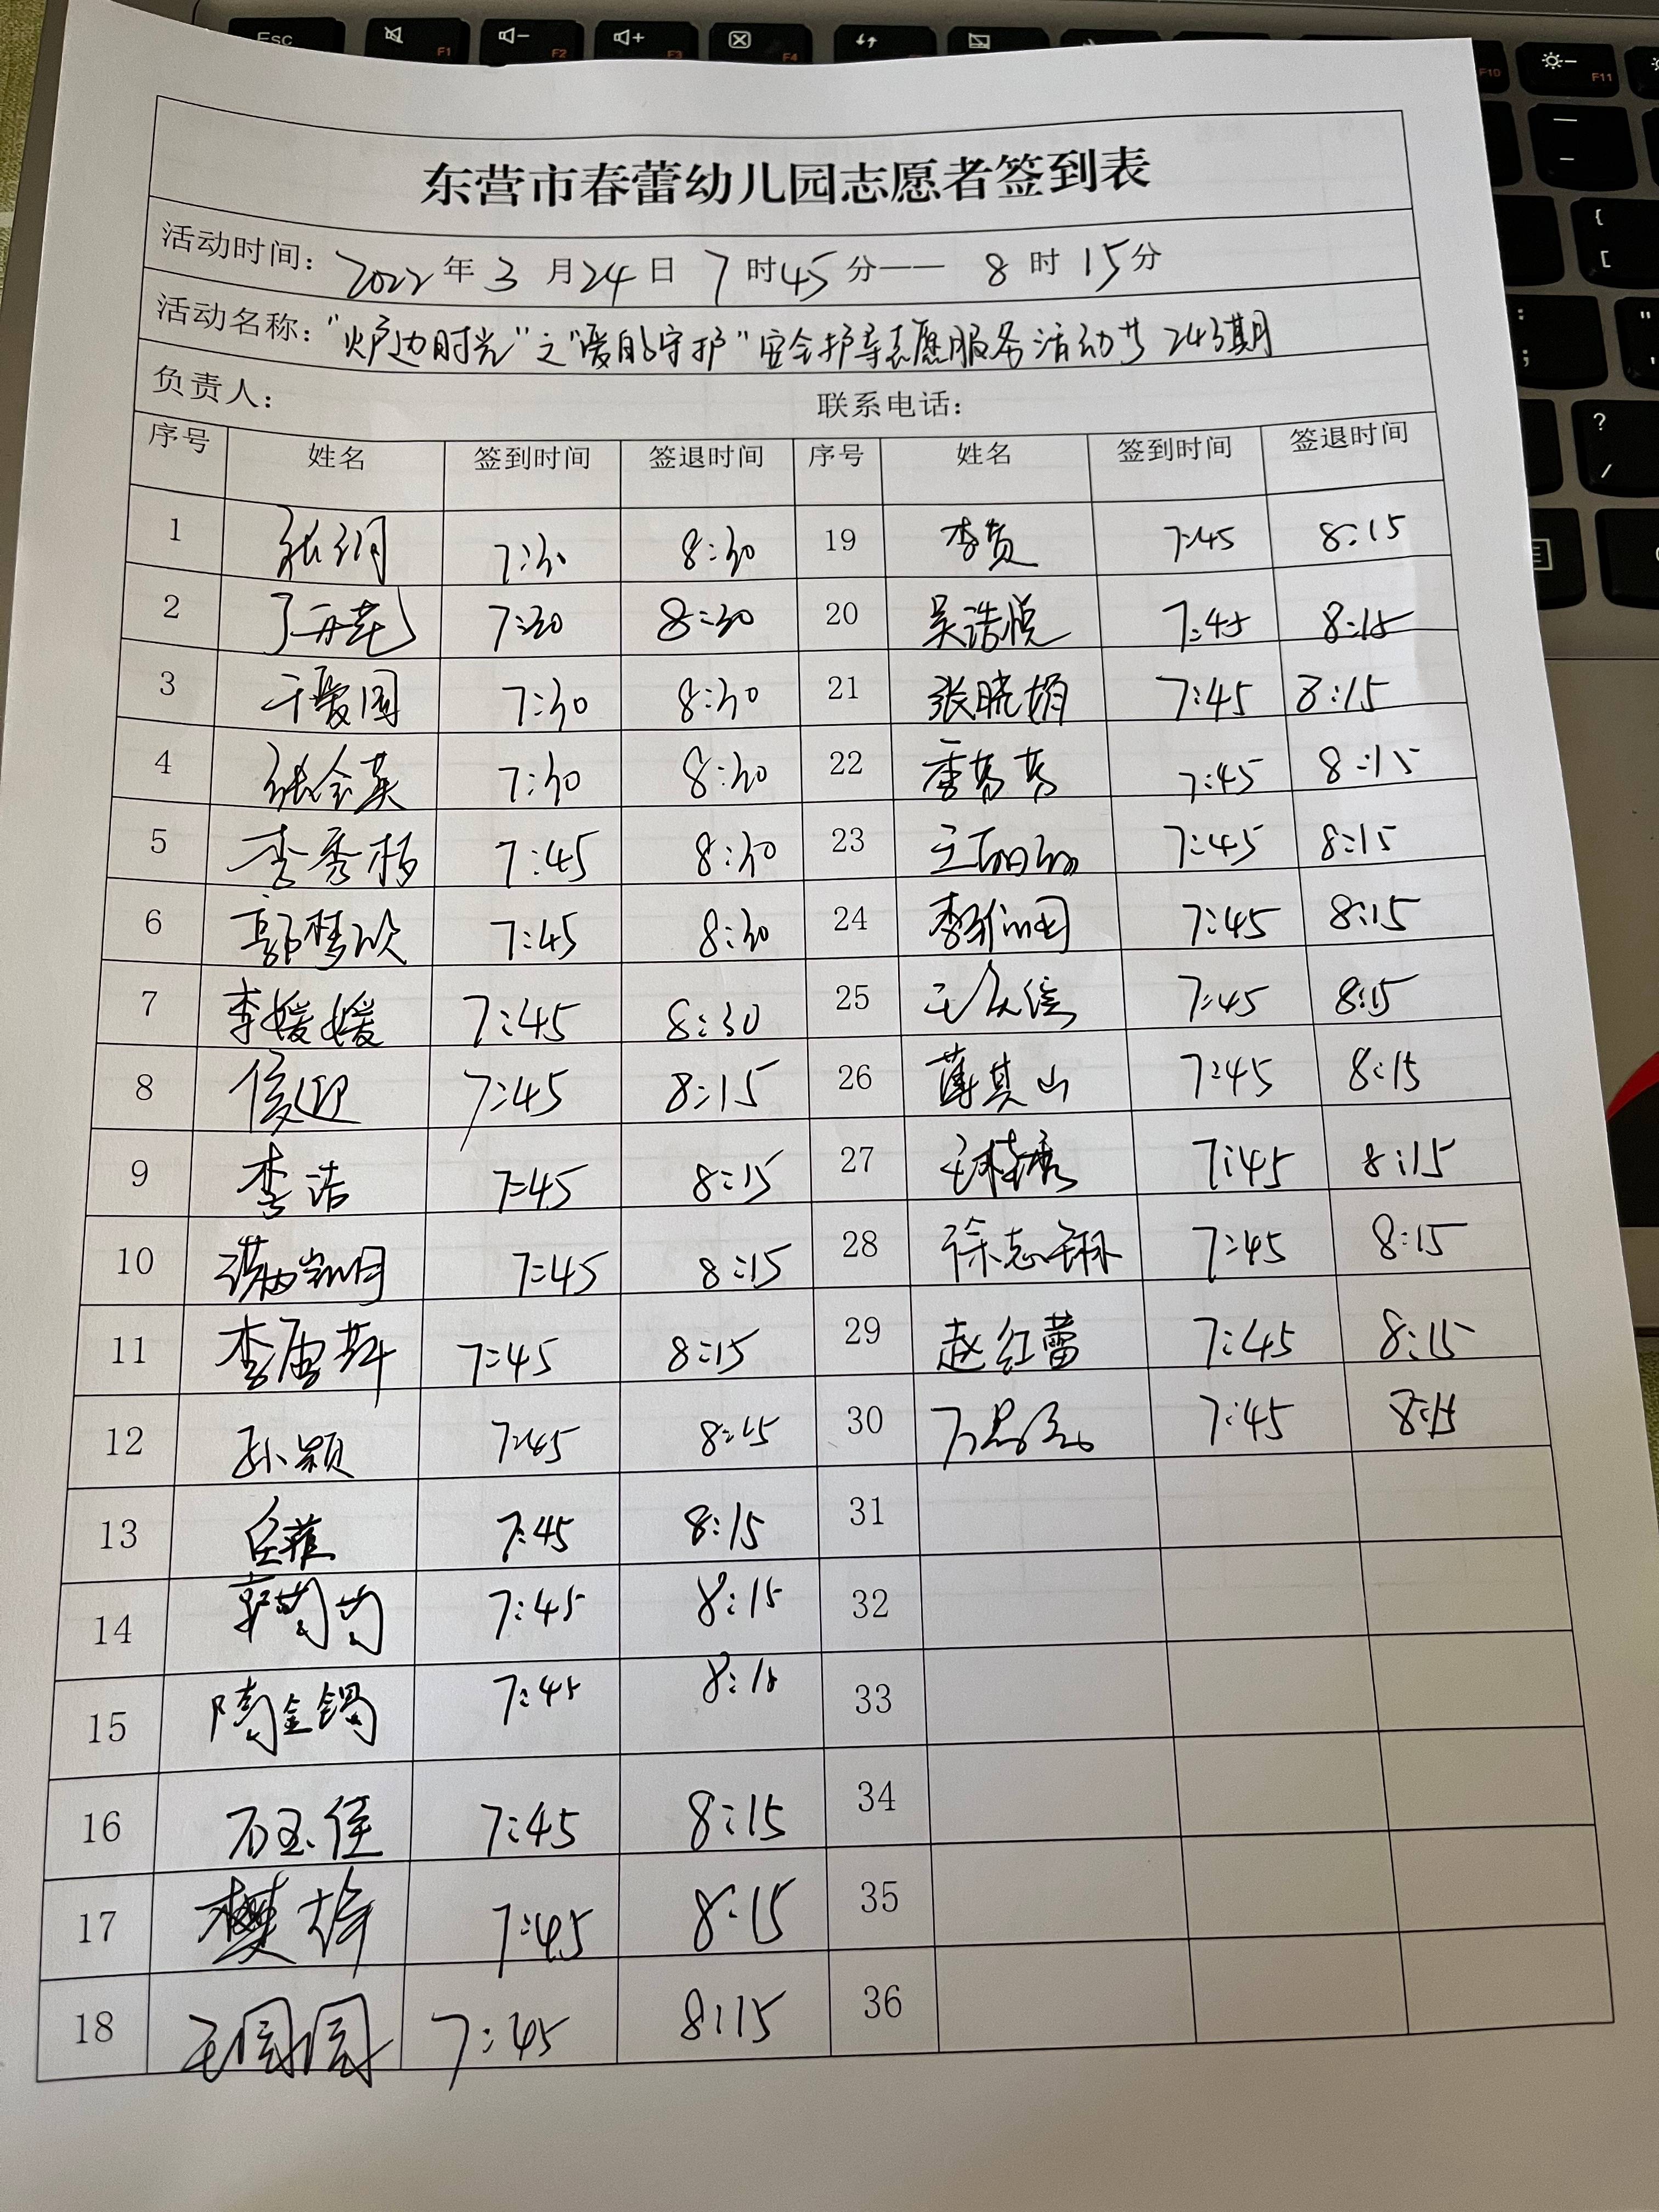 东营市春蕾幼儿园志愿者签到表
活动时间：2022年3月24日7时45分——8时15分
活动名称：“炉边时光”之“爱的守护”安全护导志愿服务活动 243期
负责人： 联系电话：
序号 姓名 签到时间 签退时间 序号 姓名 签到时间 签退时间
1 7:30 8:30 19 李贺 7:45 8:15
2 7:30 8:30 20 吴浩悦 7:45 8:15
3 于爱国 7:30 8:30 21 张晓娟 7:45 8:15
4 张会英 7:30 8:30 22 李芳芳 7:45 8:15
5 李秀 7:45 8:30 23 王丽丽 7:45 8:15
6 郭梦欣 7:45 8:30 24 李 7:45 8:15
7 李媛媛 7:45 8:30 25 王 7:45 8:15
8 侯迎 7:45 8:15 26 薄其山 7:45 8:15
9 李洁 7:45 8:15 27 王桂秀 7:45 8:15
10 7:45 8:15 28 徐志琳 7:45 8:15
11 李 7:45 8:15 29 赵红蕾 7:45 8:15
12 孙颖 7:45 8:15 30 7:45 8:15
13 7:45 8:15 31
14 7:45 8:15 32
15 陶金锡 7:45 8:15 33
16 石玉佳 7:45 8:15 34
17 樊 7:45 8:15 35
18 王园园 7:45 8:15 36
Esc F1 F2 F3 F4 F10 F11